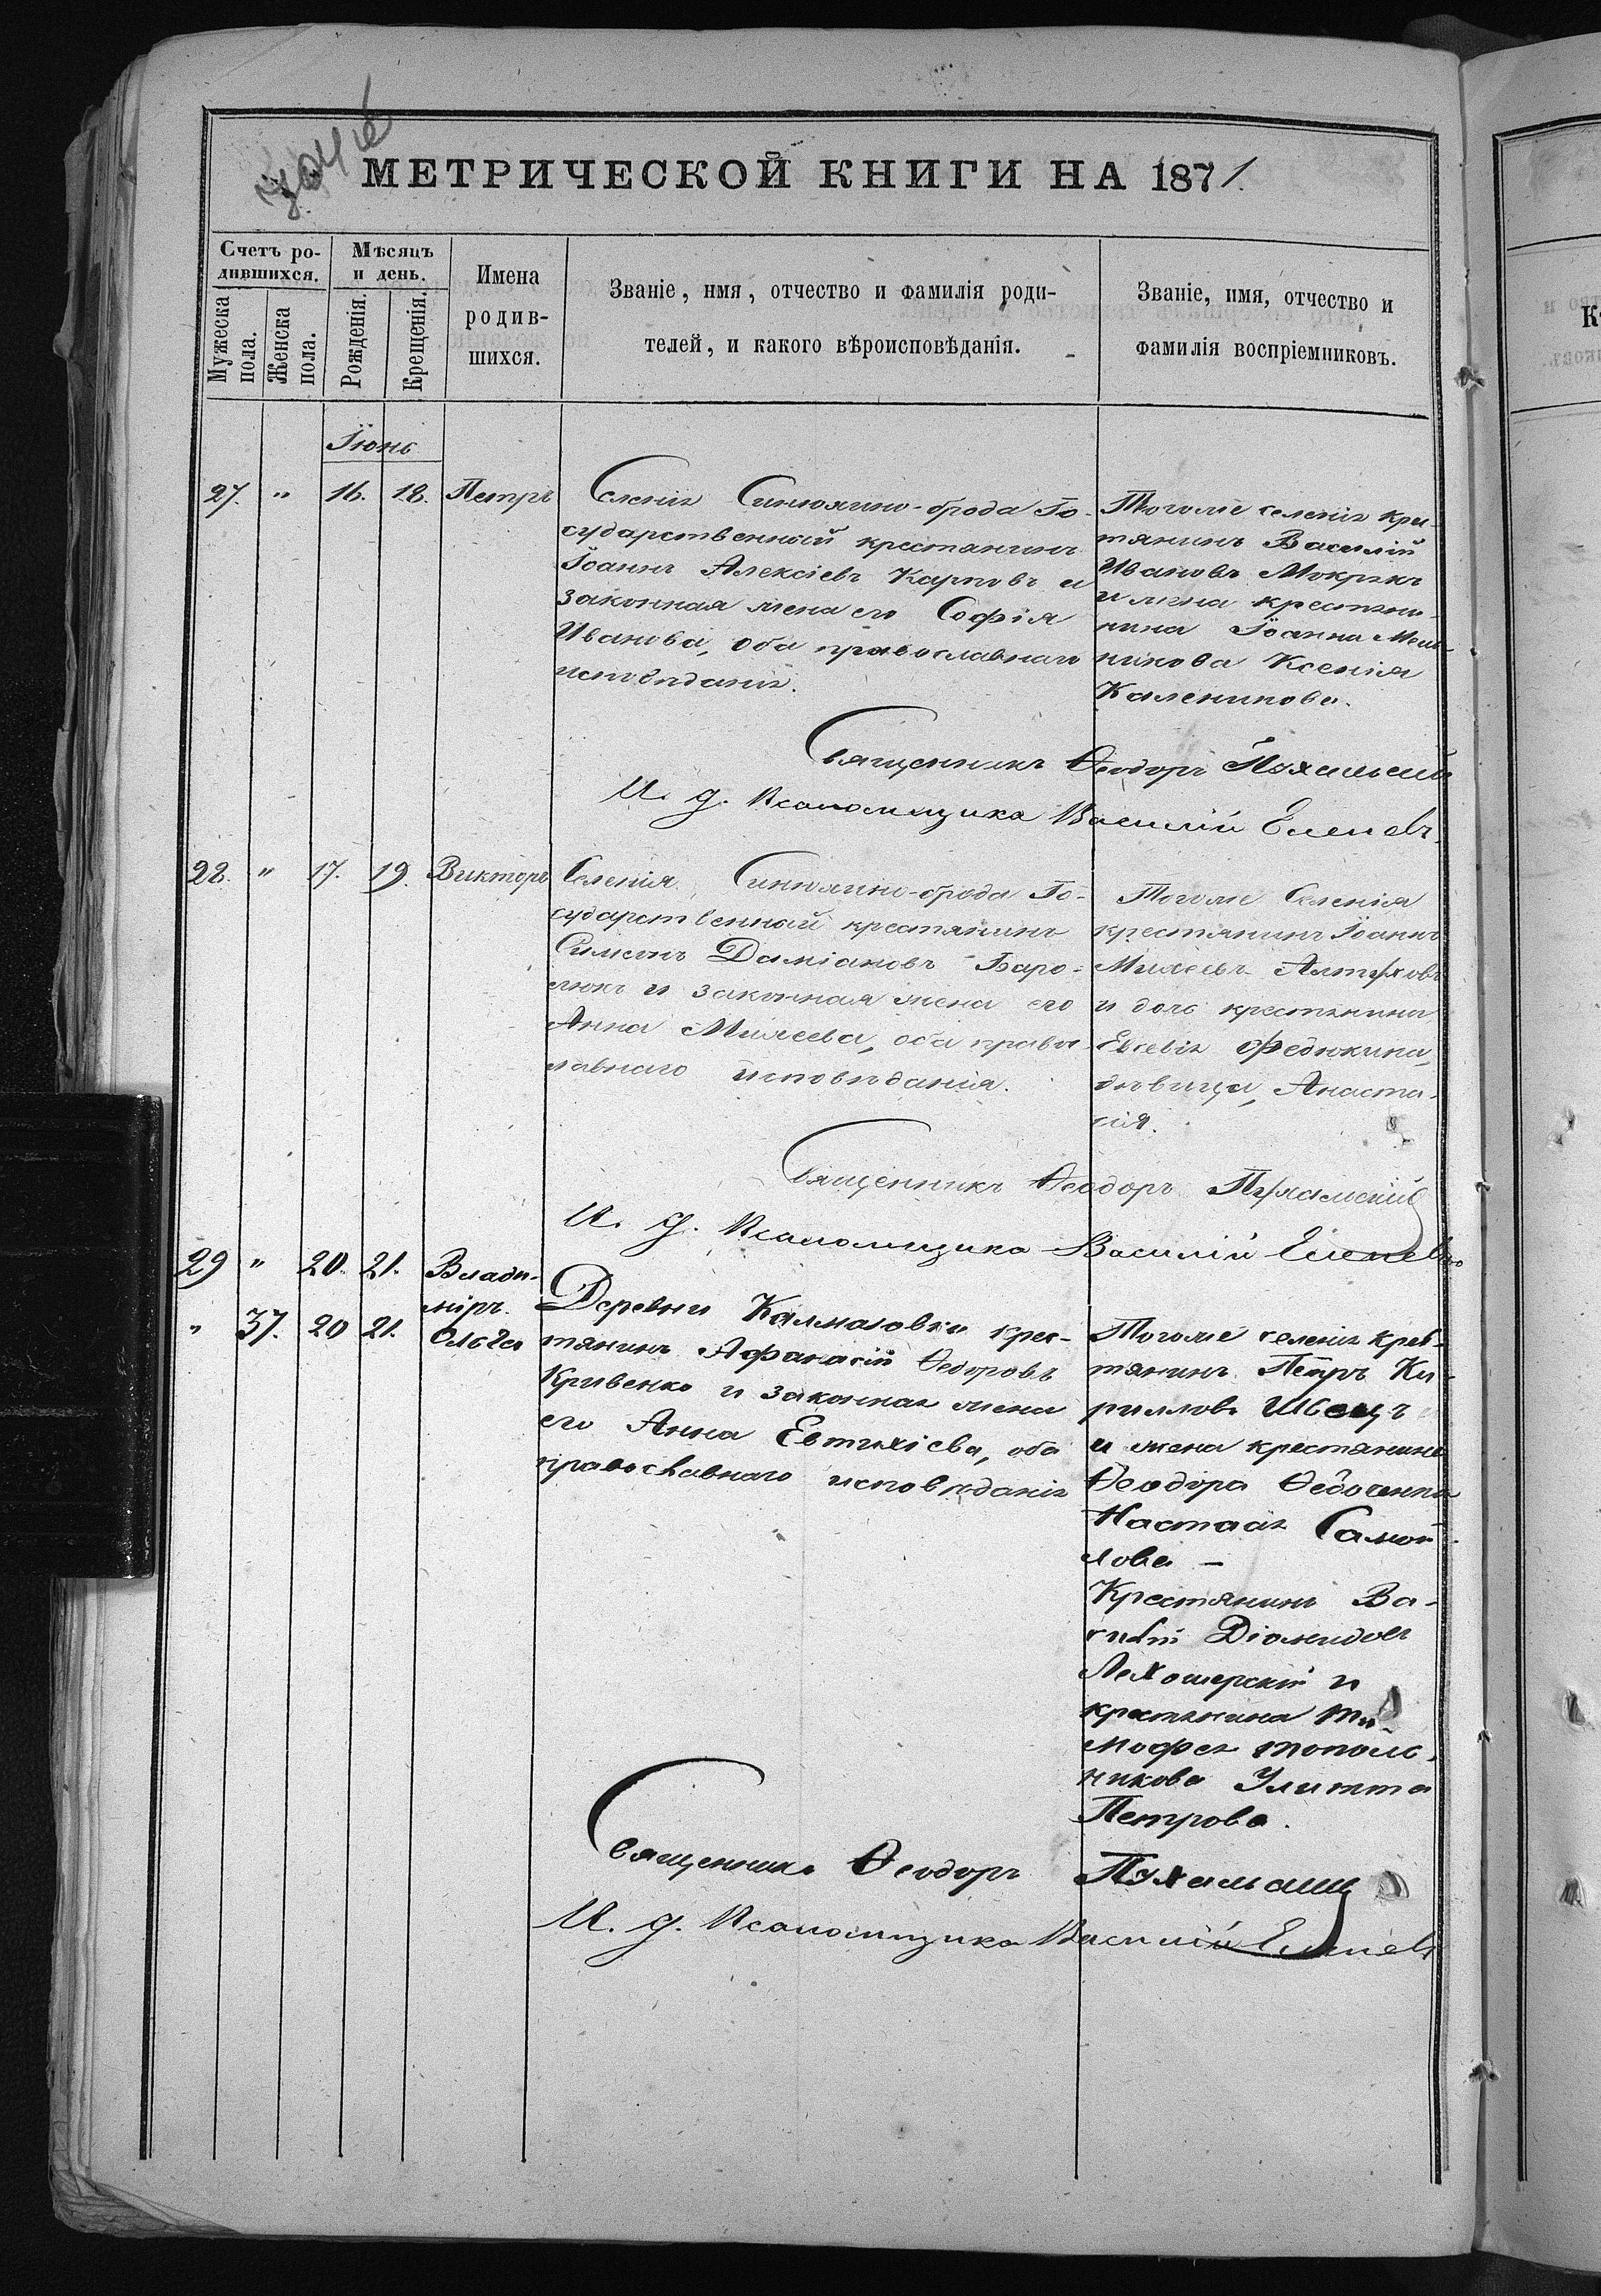 МЕТРИЧЕСКОЙ КНИГИ НА 1871.
Счетъ ро-
дившихся.
Мѣсяцъ
и день.
Мужеска
пола.
Женска
пола.
Рожденія.
Крещенія.
Имена
родив-
шихся.
Званіе, имя, отчество и фамилія роди-
телей, и какого вѣроисповѣданія.
Званіе, имя, отчество и
фамилія воспріемниковъ.
Іюнь
27. " 16. 18. Петръ
Селенія Синюхино-брода Го-
сударственный крестянинъ
Іоаннъ Алексіевъ Карповъ и
законная жена его Софія
Иванова, оба православнаго
исповѣданія.
Тогоже селенія крес-
тянинъ Василій
Ивановъ Мокрякъ
и жена крестяни-
нина Іоанна
Ксенія
Каленикова.
Священникъ Ѳеодоръ Пухальскій
И. д. Псаломщика Василій
28. " 17. 19. Викторъ
Селенія Синюхино-брода Го-
сударственный крестянинъ
Симеонъ Даміановъ Баро-
люкъ и законная жена его
Анна Михеева, оба правос-
лавнаго исповѣданія.
Тогоже Селенія
крестянинъ Іоаннъ
Михеевъ Алтуховъ
и дочь крестянина
Евсевія Федюкина,
дѣвица, Анаста-
сія.
Священникъ Ѳеодоръ Пухальскій
И. д. Псаломщика Василій
29 " 20. 21. Влади-
міръ.
" 37. 20 21. Ольга
Деревни Калмазовки крес-
тянинъ Афанасій Ѳедоровъ
Кривенко и законная жена
его Анна Евтихіева, оба
православнаго исповѣданія
Тогоже селенія крес-
тянинъ Петръ Ки-
рилловъ Швецъ
и жена крестянина
Ѳеодора Ѳедоченка
Настасія Самой-
лова –
Крестянинъ Ва-
силій Діомидовъ
и
крестянина Ти-
мофея Тополь-
никова Улитта
Петрова.
Священникъ Ѳеодоръ Пухальскій
И. д. Псаломщика Василій